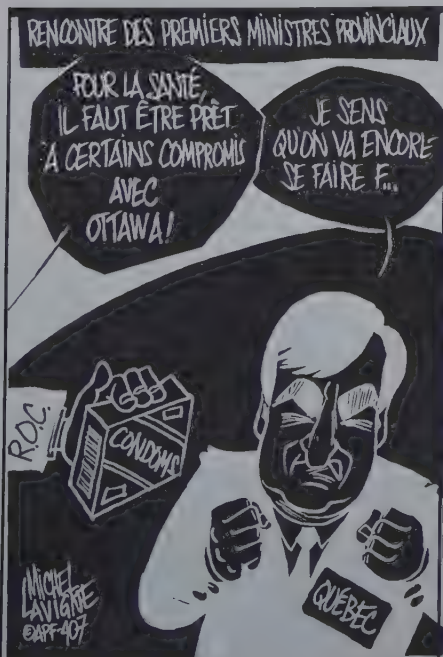 RENCONTRE DES PREMIERS MINISTRES PROVINCIAUX
POUR LA SANTÉ,
IL FAUT ÊTRE PRÊT
À CERTAINS COMPROMIS
AVEC
OTTAWA!
JE SENS
QU'ON VA ENCORE
SE FAIRE F...
R.O.C.
CONDOMS
QUÉBEC
MICHEL
LAVIGNE
©APF-407